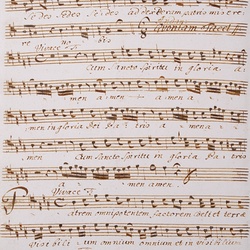 Sedes Sedes ad dexteram patris mise re
re nobis Quoniam tacet
Vivace
Cum Sancto Spiritu in gloria a
men a men a
men in gloria Dei Pa tris a mena
men Cum Sancto Spiritu in gloria Pa tris
a amen.
Vivace
Patrem omnipotentem factorem coeli et terre
visi bili um omnium omnium et in visi bi